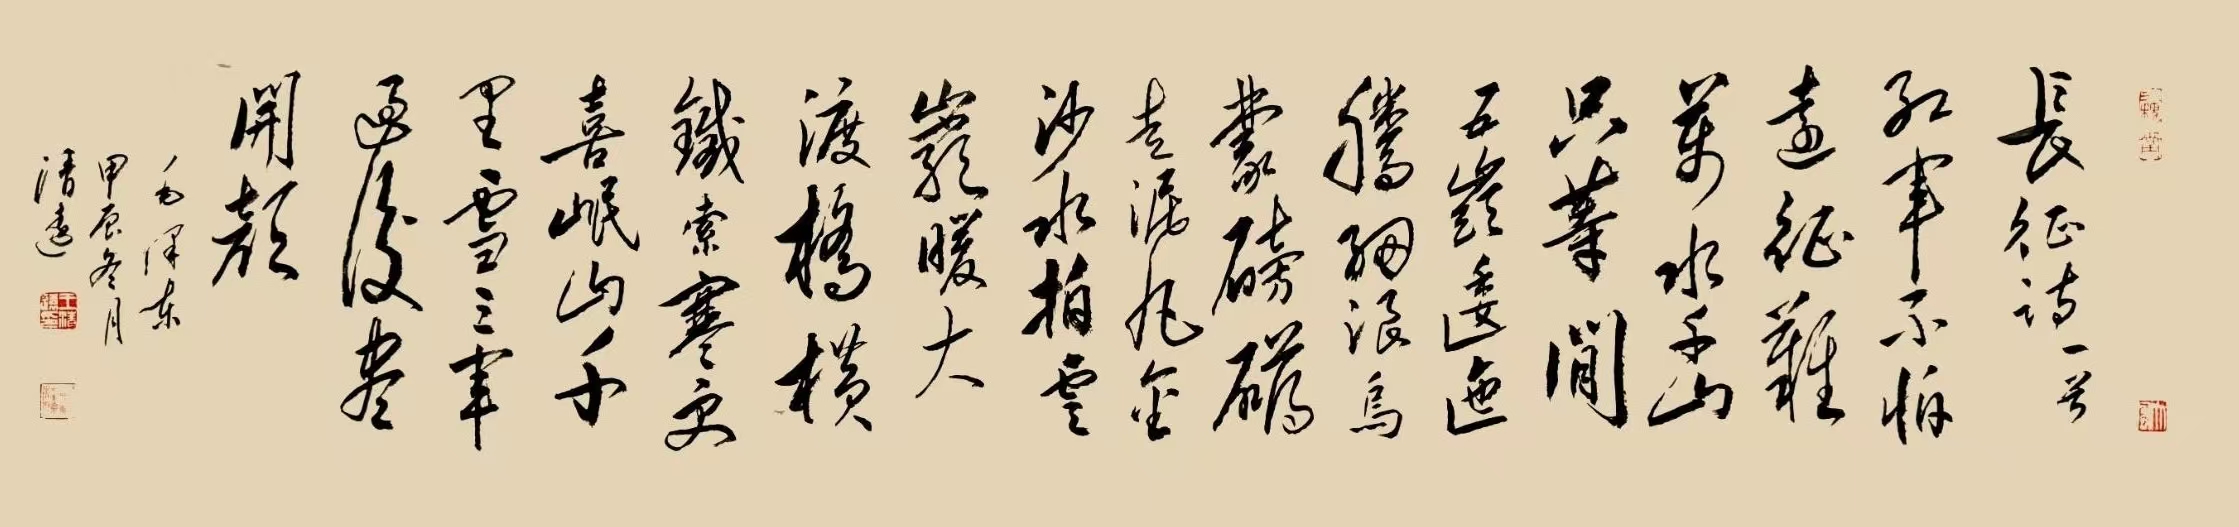 長征詩一首
紅軍不怕
遠征難
萬水千山
只等閒
五嶺逶迤
騰細浪烏
蒙磅礴
走泥丸金
沙水拍雲
巖暖大
渡橋橫
鐵索寒更
喜岷山千
里雪三軍
過後盡
開顏
毛澤東
甲辰冬月
清遠